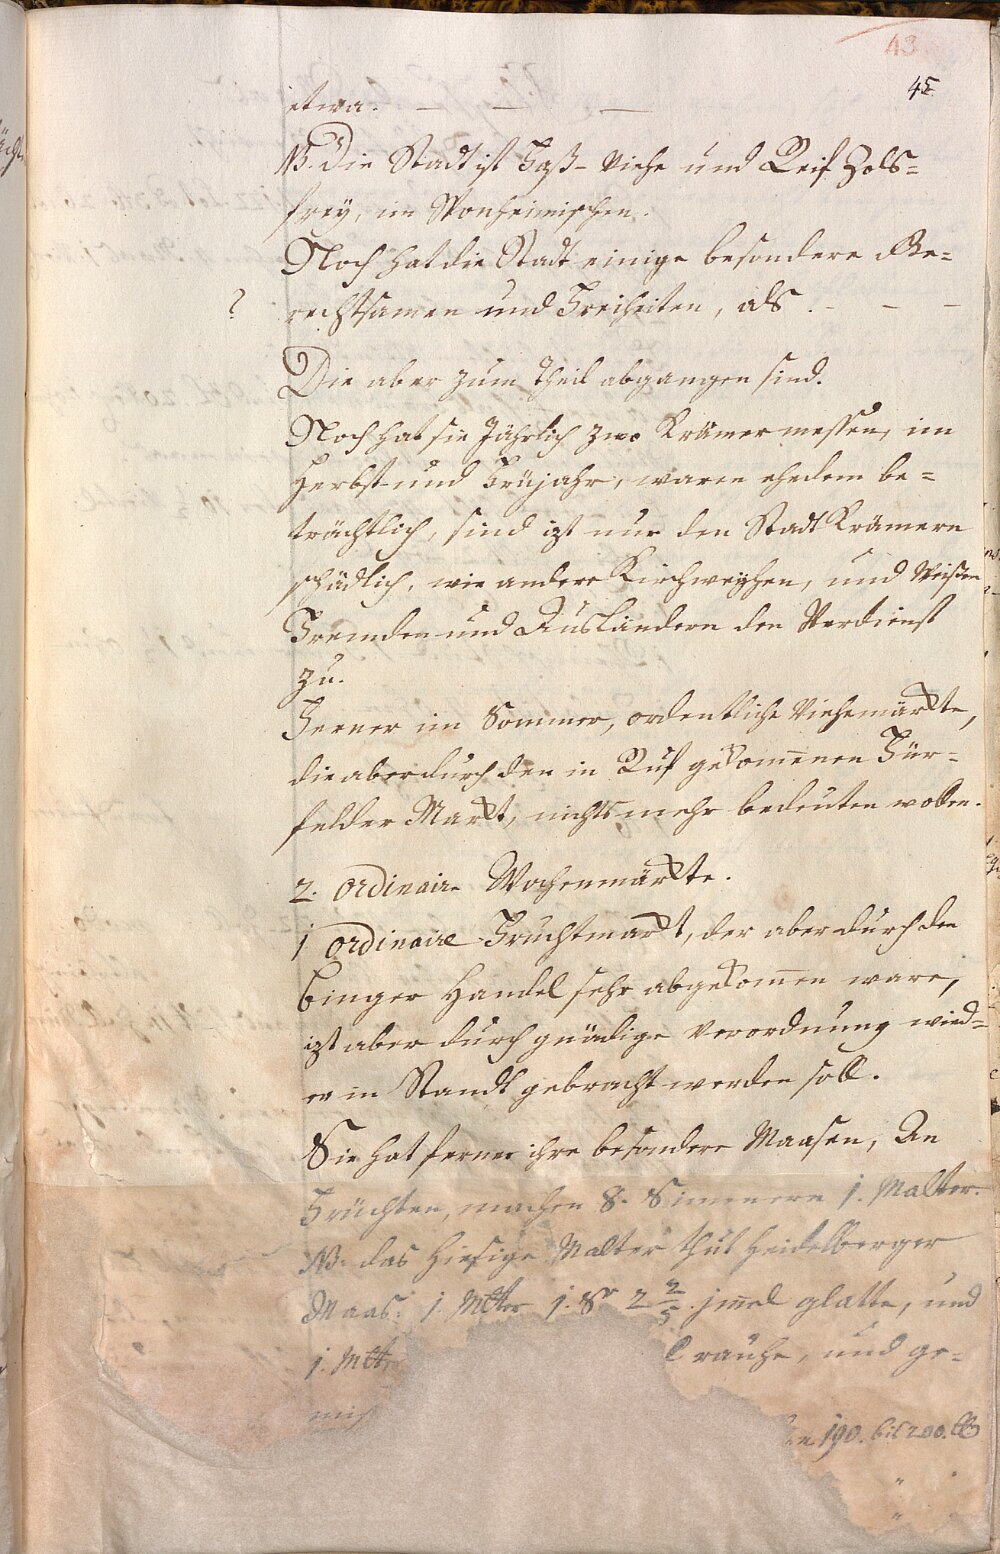 43
45
etwa. — — —
NB. Die Stadt ist Faß- Viehe und Reif Zols=
frey, im Sponheimischen.
Noch hat die Stadt einige besondere Ge=
? rechtsamen und Freiheiten, als. — — —
Die aber zum Theil abgangen sind.
Noch hat sie Jährlich zwo Krämermessen, im
Herbst und Früjahr, waren ehedem be=
trächtlich, sind izt nur den Stadt Krämern
schädlich, wie andere Kirchweyhen, und Weisen
Fremden und Ausländern den Verdienst
zu.
Ferner im Sommer, ordentliche Viehemärkte,
die aber durch den in Ruf gekom̅enen Für=
felder Markt, nichts mehr bedeuten wollen.
2. ordinaire Wochenmärkte.
1 ordinaire Fruchtmarkt, der aber durch den
Binger Handel sehr abgekom̅en ware,
izt aber durch gnädige Verordnung wied=
er in Standt gebracht werden soll.
Sie hat ferner ihre besondere Maasen, An
Früchten, machen 8. Simmern 1. Malter.
NB. das hiesige Malter thut Heidelberger
Maas: 1. Mltr 1. Sr 2 2/5. jm̅el glatte, und
1. Mltr rauhe, und ge=
mis
190. bis 200. ℔
" "
"